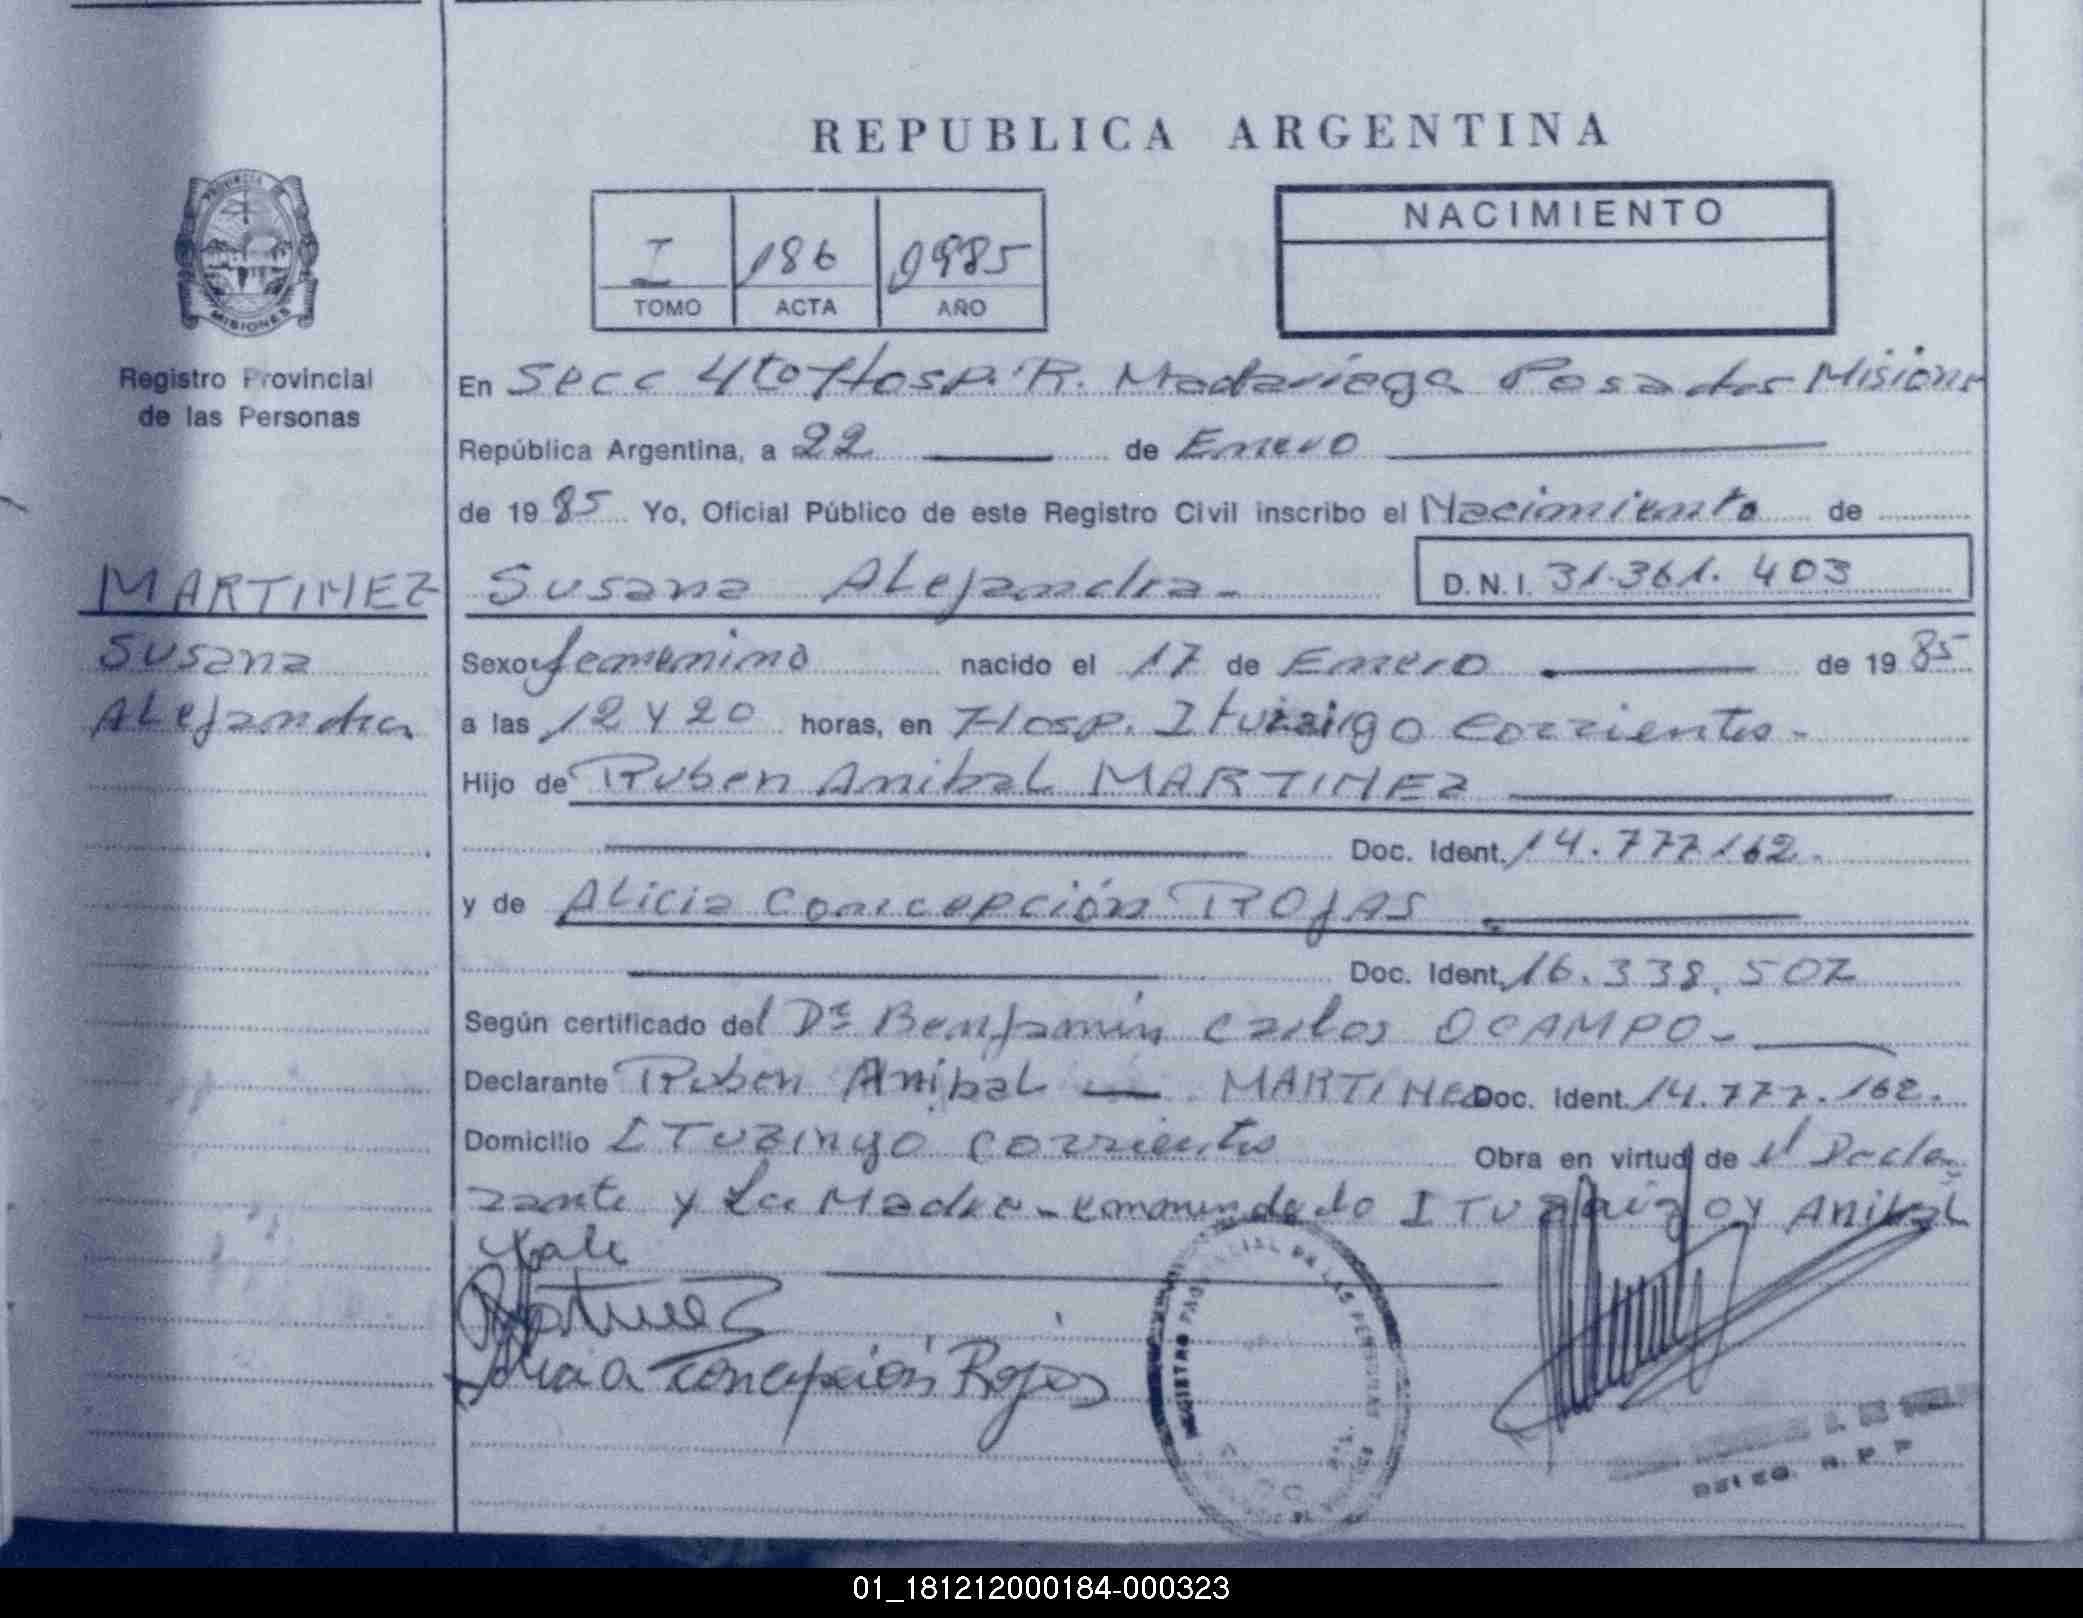 REPUBLICA ARGENTINA
PROVINCIA DE
MISIONES
Registro Provincial
de las Personas
I 186 1985
TOMO ACTA AÑO
NACIMIENTO
En Secc 4to Hosp. R. Madariaga Posadas Misiones
República Argentina, a 22 de Enero
de 1985 Yo, Oficial Público de este Registro Civil inscribo el Nacimiento de
MARTINEZ
Susana
Alejandra
Susana Alejandra-
D.N.I. 31.361.403
Sexo femenino nacido el 17 de Enero de 1985
a las 12 y 20 horas, en Hosp. Ituzaigo Corrientes-
Hijo de Ruben Anibal MARTINEZ
Doc. Ident. 14.777.162.
y de Alicia Concepción ROJAS
Doc. Ident. 16.338.507
Según certificado del Dr Benjamín Carlos OCAMPO-
Declarante Ruben Anibal MARTINEZ Doc. Ident. 14.777.162.
Domicilio ITuzingo Corrientes Obra en virtud de el Decla-
rante y La Madre-enmendado ITuzaigo y Anibal
Vale
Martinez
Alicia Concepción Rojas
LAS PERSONAS
DELEG. R. P. P
01_181212000184-000323